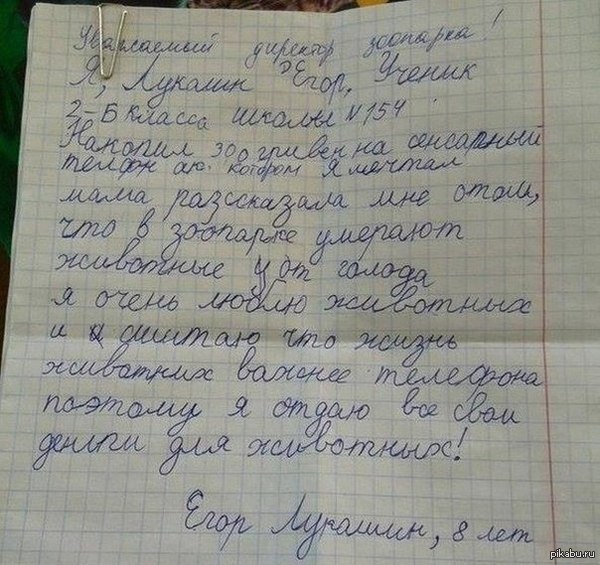 Уважаемый директор зоопарка!
Я, Лукашин Егор, Ученик
2-Б класса школы №154
Накопил 300 гривен на сенсарный
телфон ао котором я мечтал
мама разссказала мне отом,
что в зоопарке умерают
животные от голода
я очень люблю животных
и считаю что жизнь
животних важнее телефона
поэтому я отдаю все свои
деньги для животных!
Егор Лукашин, 8 лет
pikabu.ru